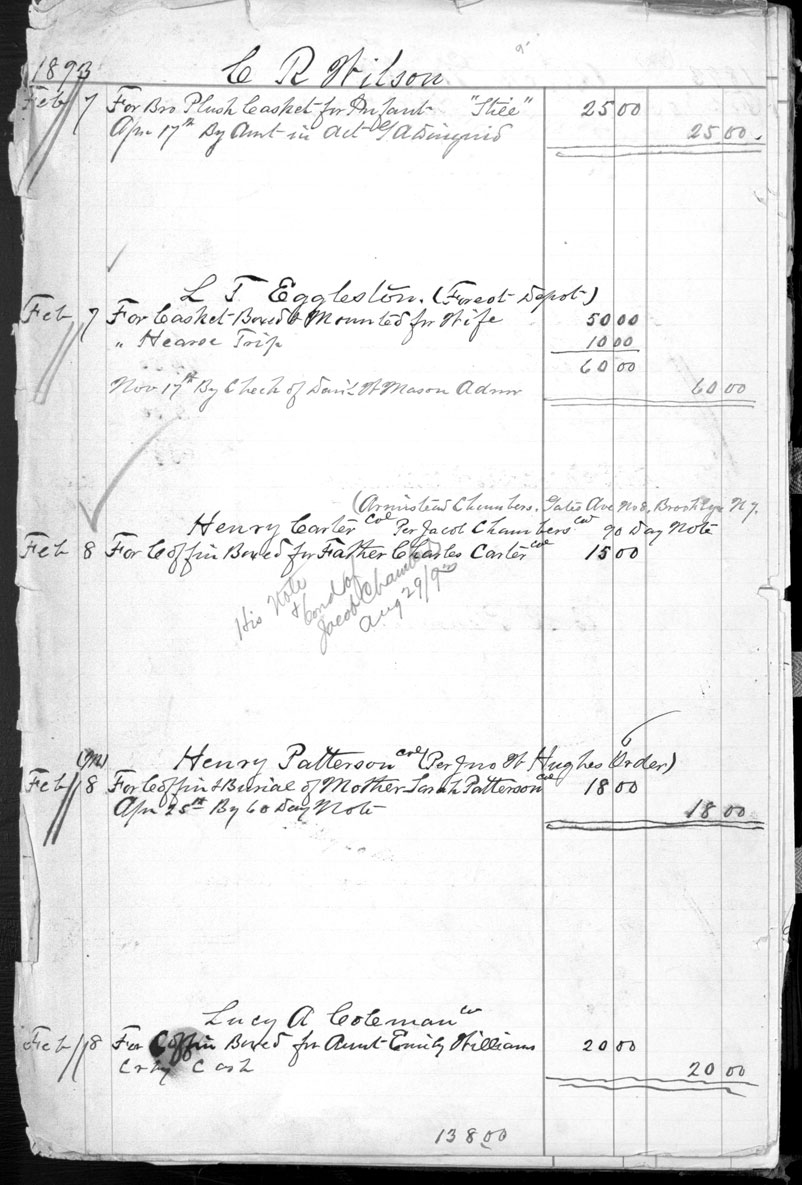 1893 C R Wilson
Feb 7 For Bro Plush Casket for Infant 25 00
Apr 17th By Amt in Act 25 00
L T Eggleston. (Forest Depot)
Feb 7 For Casket Boxed & Mounted for Wife 50 00
" Hearse Trip 10 00
60 00
Nov 17th By Check of Davi W Mason Admr 60 00
(Armistead Chambers, Gates Ave No 8, Brooklyn N.Y.
Henry Carter Col Per Jacob Chambers Col 90 Day Note
Feb 8 For Coffin Boxed for Father Charles Carter Col 15 00
His Note
& bond of
Jacob Chambers
Aug 29/9
Henry Patterson Col (Per Jno W Hughes Order)
Feb 8 For Coffin & Burial of Mother Sarah Patterson Col 18 00
Apr 25th By 60 Day Note 18 00
Lucy A Coleman Col
Feb 8 For Coffin Boxed for Aunt Emily Williams 20 00
Cr by Cash 20 00
138 00